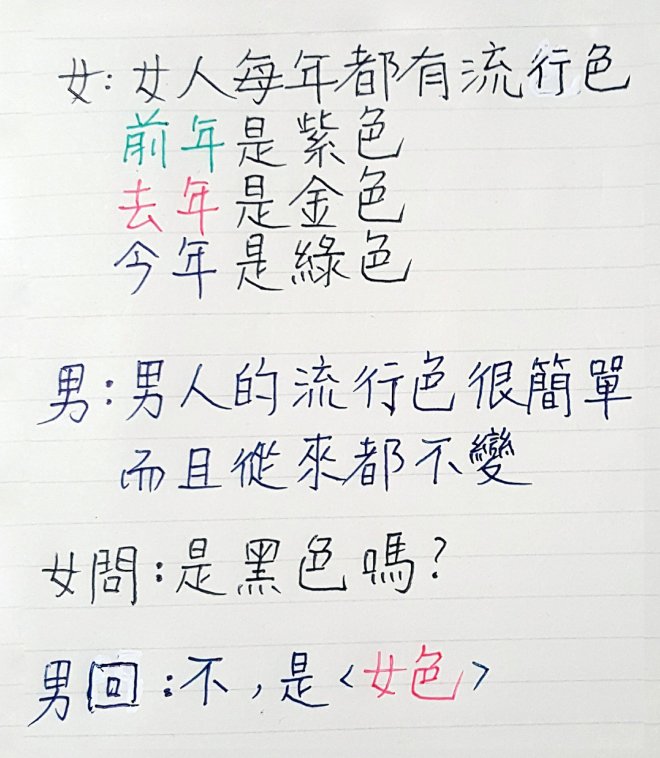 女:女人每年都有流行色
前年是紫色
去年是金色
今年是綠色
男:男人的流行色很簡單
而且從來都不變
女問:是黑色嗎?
男回:不,是<女色>